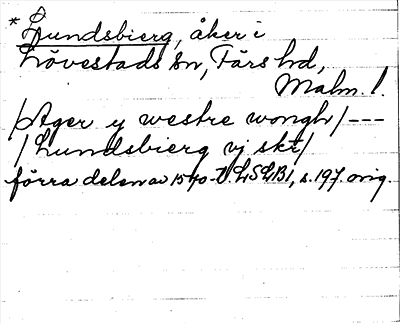 * Lundsbierg, åker i
Lövestads sn, Färs hd,
Malm. l.
/Ager y westre wongh/ ---
/Lundsbierg vj skr/
förra delen av 1570-t. LSLB1, s. 197. orig.